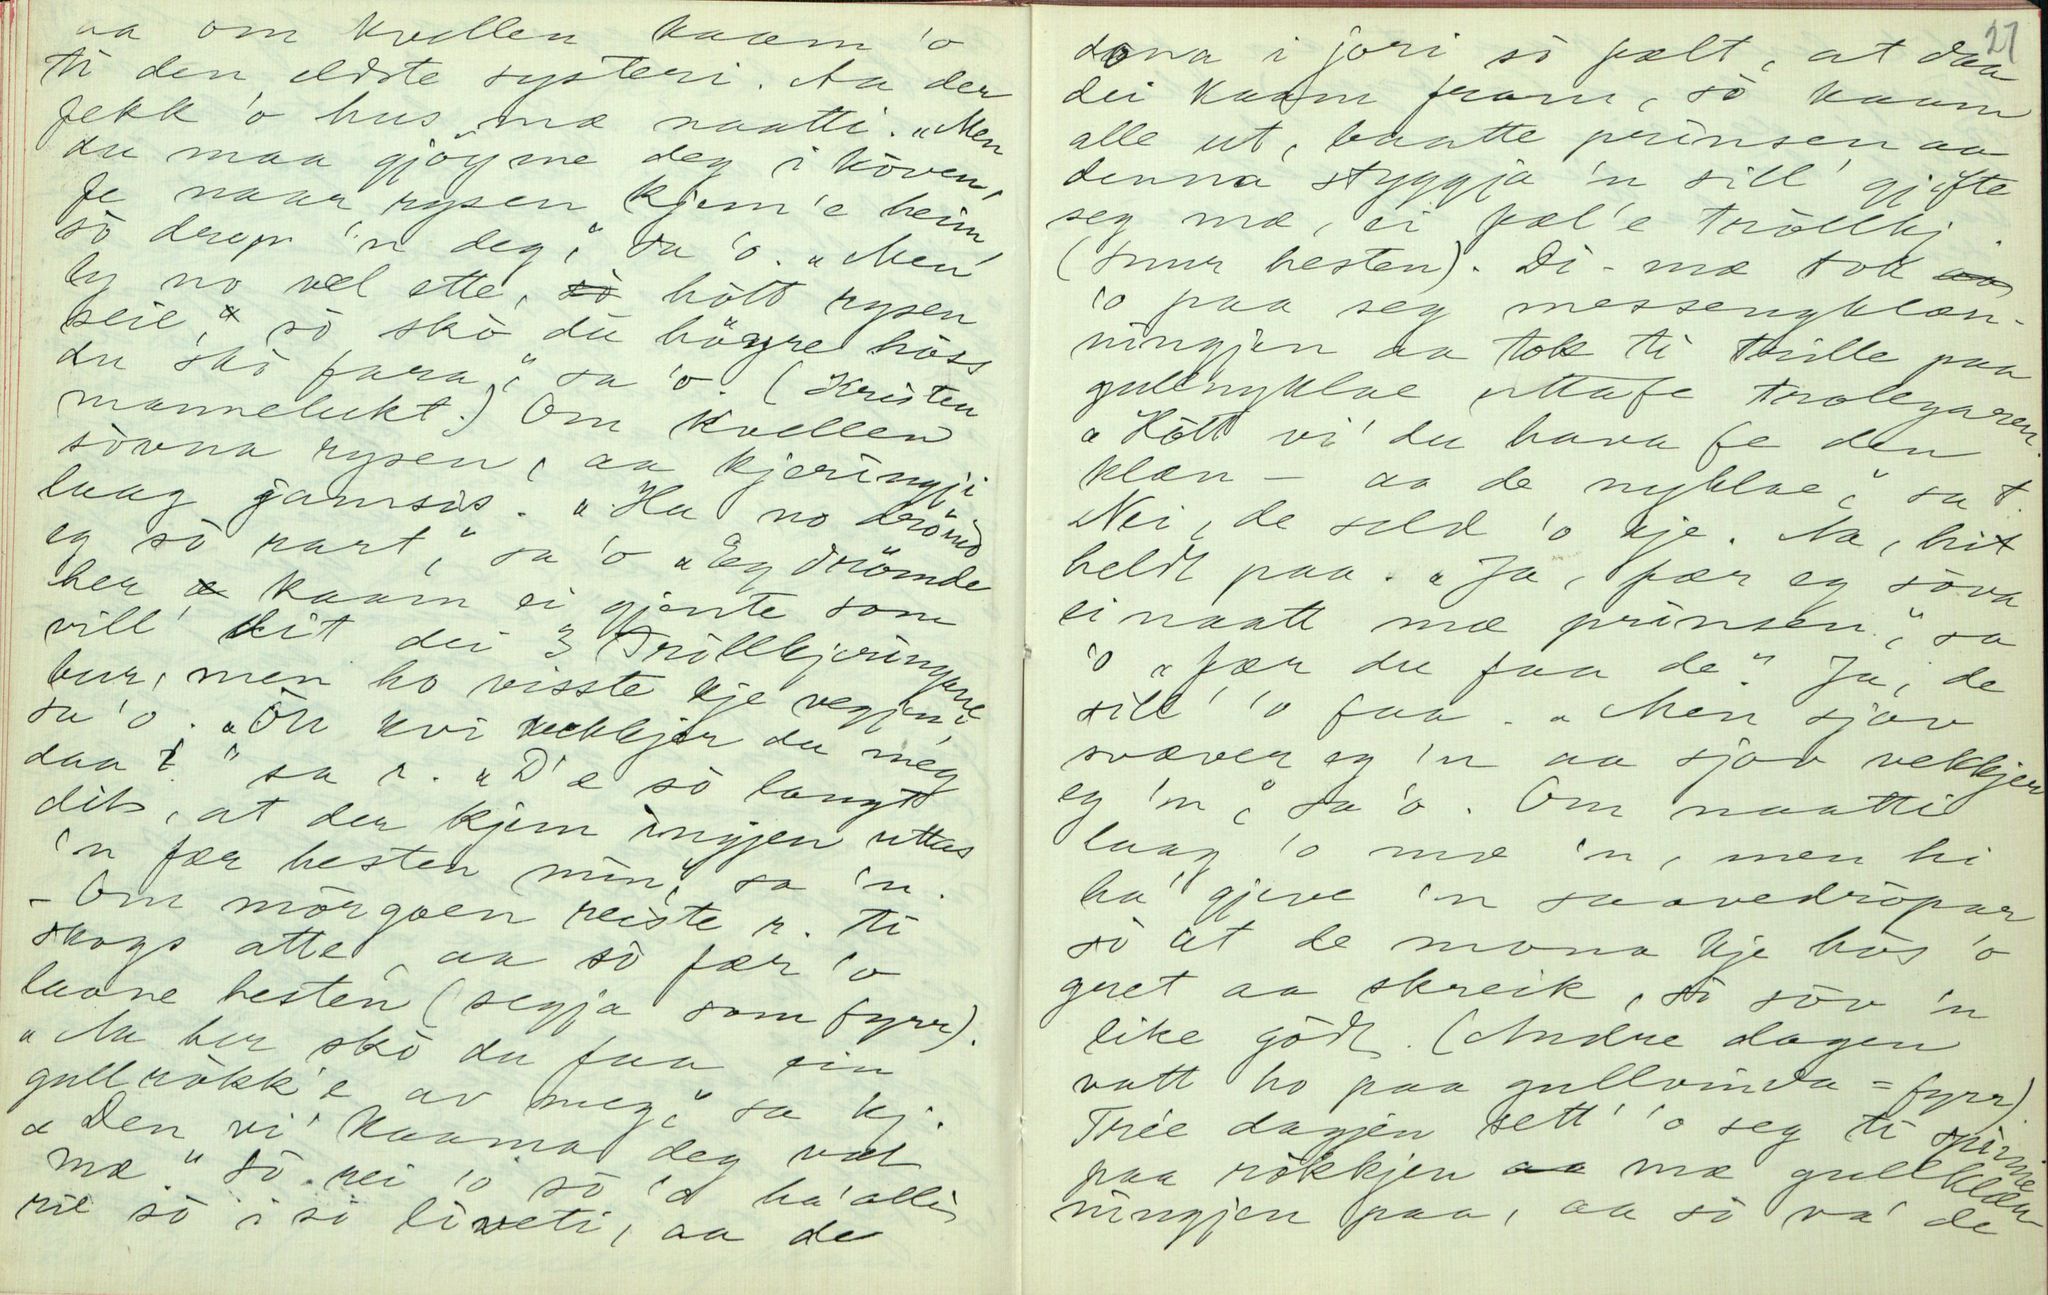 aa om kvellen kaam 'o
ti den eldste systeri. Aa der
fekk 'o hus mæ naatti. „Men
du maa gjöyme deg i köven,
fe naar rysen kjem'e heim,
sö drep 'n deg," sa 'o. „Men
ly no vel ette, hött rysen
seie," sö skö du höyre höss
du skö fara," sa 'o. (Kristen
mannelukt.) Om kvellen
sovna rysen, aa kjeringji
laag jamsis. „Hu no drömd
eg sö rart," sa 'o „Eg drömde
her kaam ei gjente som
vill' dit dei 3 Tröllkjeringane
bur, men ho visste kje vegjen,"
sa 'o. „Öh kvi vekkjer du meg
daa?" sa r. „D'e sö langt
dit, at der kjem ingjen uttas
'n fær hesten min," sa 'n.
- Om mörgoen reiste r. ti
skogs atte, aa sö fær 'o
laane hesten (segja som fyrr).
„Aa her skö du faa ein
gullrökk'e av meg," sa kj.
„Den vi' kaama deg vel
mæ." Sö rei 'o sö 'o ha' alli
rie sö i si liveti, aa de
27
dona i jori sö pælt, at daa
dei kaam fram, sö kaam
alle ut, baatte prinsen aa
denna styggja 'n sill' gjifte
seg mæ, ei fæl'e tröllkj.
(snur hesten). Di-mæ tok
'o paa seg messengklæn-
ningjen aa tok ti trille paa
gullnyklae uttafe trolegaren.
„Hött vi' du hava fe den
klæn- aa de nyklae," sa t.
Nei, de seld 'o kje. Na, hit
heldt paa. „Ja, fær eg söva
ei naatt mæ prinsen," sa
'o „fær du faa de." Ja, de
sill' 'o faa. „Men sjöv
svæver eg 'n aa sjöv vekkjer
eg 'n," sa 'o. Om naatti
laag 'o mæ 'n, men hi
ha' gjeve 'n saavedröpar
sö at de mona kje hös 'o
gret aa skreik, sö söv 'n
like gödt. (Andre dagen
vatt ho paa gullvinda = fyrr)
Trie dagjen sett' 'o seg ti spinne
paa rökkjen mæ gullklæn
ningjen paa, aa sö va' de